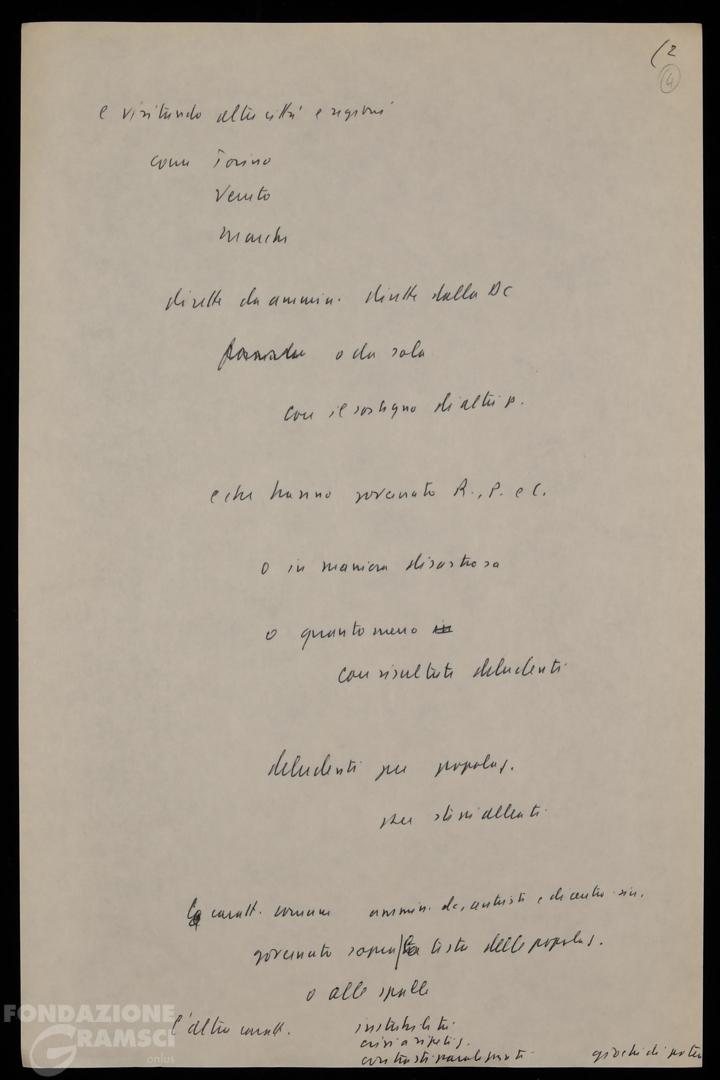 (2
4
e visitando altre città e regioni
come Torino
Veneto
Marche
dirette da ammin. dirette dalla DC
o da sola
con il sostegno di altri p.
e che hanno governato R., P. e C.
o in maniera disastrosa
o quanto meno in
con risultati deludenti
deludenti per popolaz.
per stessi alleati
La caratt. comune ammin. dc, centriste e di centro-sin.
governato sopra la testa delle popolaz.
o alle spalle
l'altra caratt. instabilità
crisi a ripetiz.
contrasti paralizzanti giochi di potere
FONDAZIONE
GRAMSCI
onlus